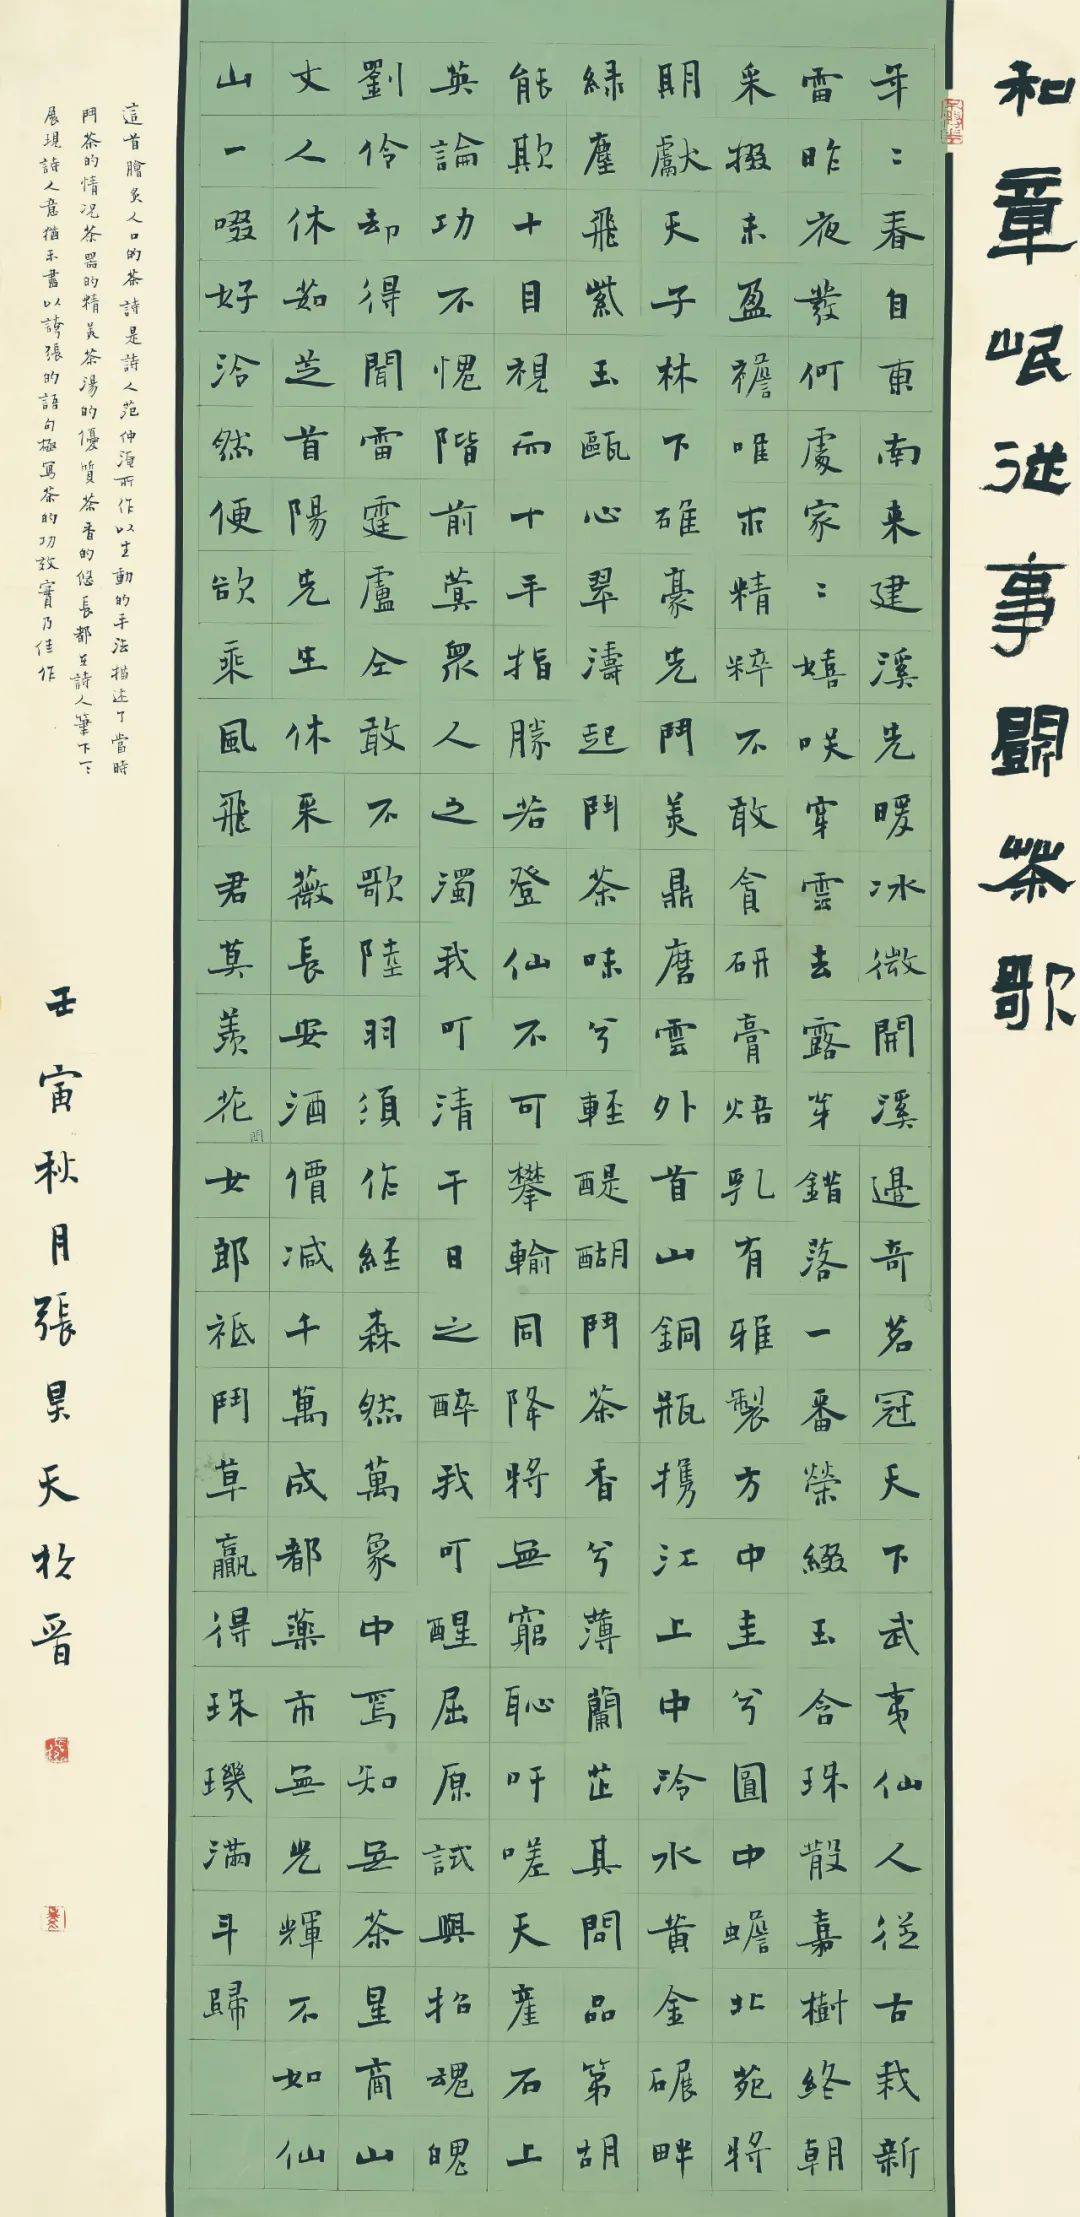 和章岷従事鬪茶歌
年〻春自東南来建溪先暖冰微開溪邉奇茗冠天下武夷仙人従古栽新
雷昨夜發何處家〻嬉咲穿雲去露芽錯落一番榮綴玉含珠散嘉樹終朝
采掇未盈襜唯求精粹不敢貪研膏焙乳有雅製方中圭兮圓中蟾北苑將
期獻天子林下雄豪先鬥美鼎磨雲外首山銅瓶携江上中泠水黄金碾畔
緑塵飛紫玉甌心翠濤起鬥茶味兮輕醍醐鬥茶香兮薄蘭芷其問品第胡
能欺十目視而十手指勝若登仙不可攀輸同降將無窮恥吁嗟天産石上
英論功不愧階前蓂衆人之濁我可清千日之醉我可醒屈原試與招魂魄
劉伶却得聞雷霆盧仝敢不歌陸羽須作経森然萬象中焉知無茶星商山
丈人休茹芝首陽先生休采薇長安酒價減千萬成都藥市無光輝不如仙
山一啜好泠然便欲乘風飛君莫羨花女郎祗鬥草贏得珠璣滿斗歸
這首膾炙人口的茶詩是詩人范仲淹所作以生動的手法描述了當時
鬥茶的情况茶器的精美茶湯的優質茶香的悠長都在詩人筆下一一
展現詩人意猶未盡以誇張的語句極寫茶的功效實乃佳作
壬寅秋月張昊天於晋